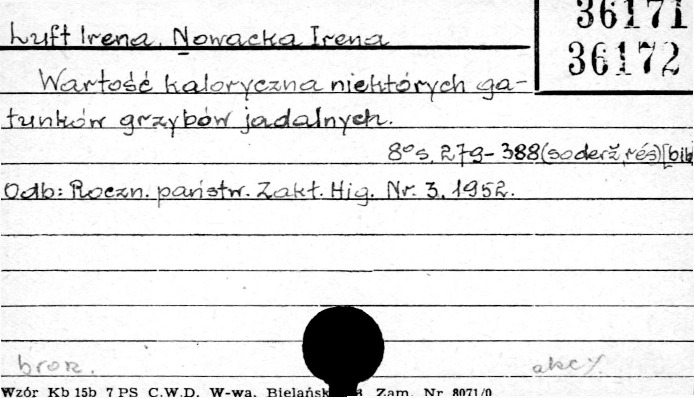 36171
Luft Irena, Nowacka Irena
36172
Wartość kaloryczna niektórych ga-
tunków grzybów jadalnych.
8°s, 279-388 (soderž, rés) [bib
Odb: Roczn. państw. Zakt. Hig. Nr. 3, 1952.
brosz. akcy.
Wzór Kb 15b 7 PS C.W.D. W-wa, Bielańsk 8 Zam. Nr 8071/0